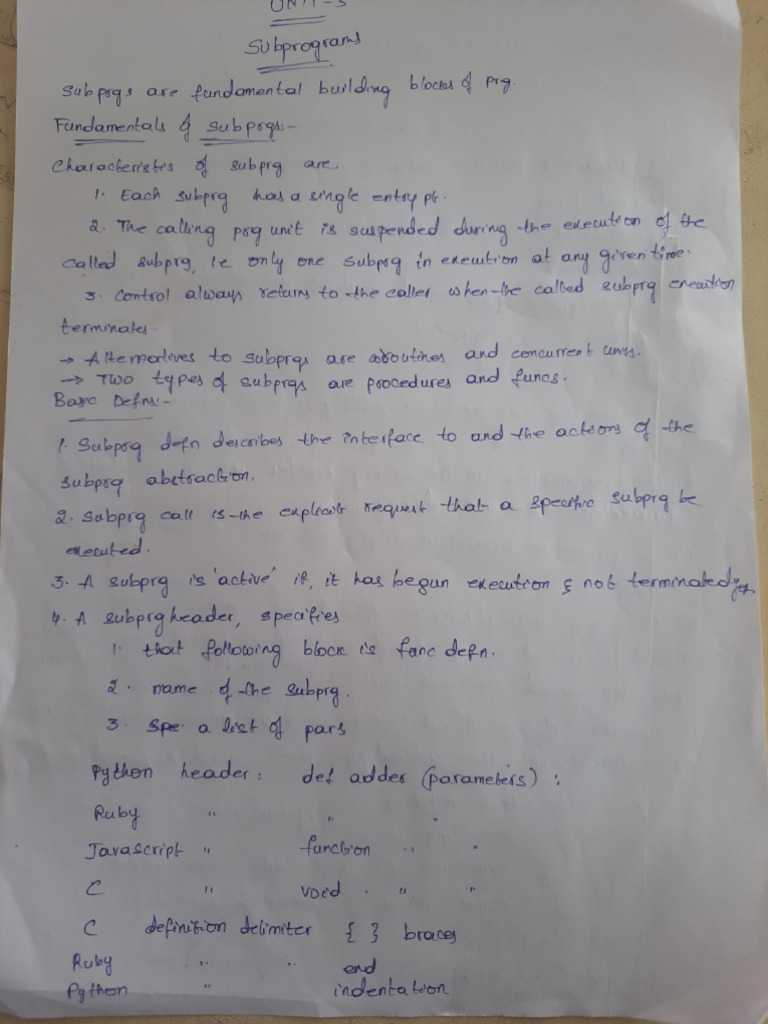 UNIT-3
Subprograms
Subprgs are fundamental building blocks of prg.
Fundamentals of subprgs:-
Characteristics of subprg are
1. Each subprg has a single entry pt.
2. The calling prg unit is suspended during the execution of the
called subprg, ie only one subprg in execution at any given time.
3. Control always returns to the caller when the called subprg execution
terminates.
→ Alternatives to subprgs are coroutines and concurrent units.
→ Two types of subprgs are procedures and funcs.
Basic Defns:-
1. Subprg defn describes the interface to and the actions of the
subprg abstraction.
2. Subprg call is the explicit request that a specific subprg be
executed.
3. A subprg is 'active' if, it has begun execution & not terminated yet.
4. A subprg header, specifies
1. that following block is func defn.
2. name of the subprg.
3. Spe a list of pars
Python header: def adder (parameters) :
Ruby " " "
Javascript " function " "
C " void " " "
C definition delimiter { } braces
Ruby " " end
Python " indentation